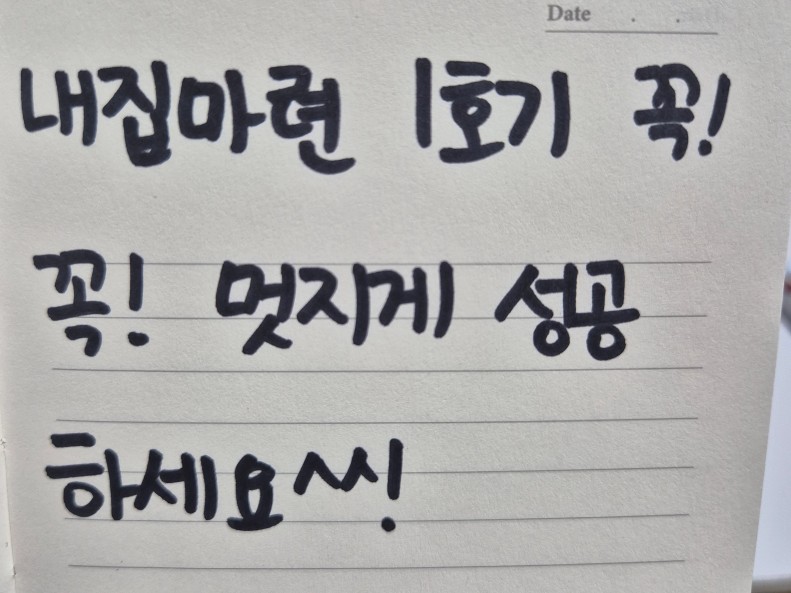 Date . .
내집마련 1호기 꼭!
꼭! 멋지게 성공
하세요^^!